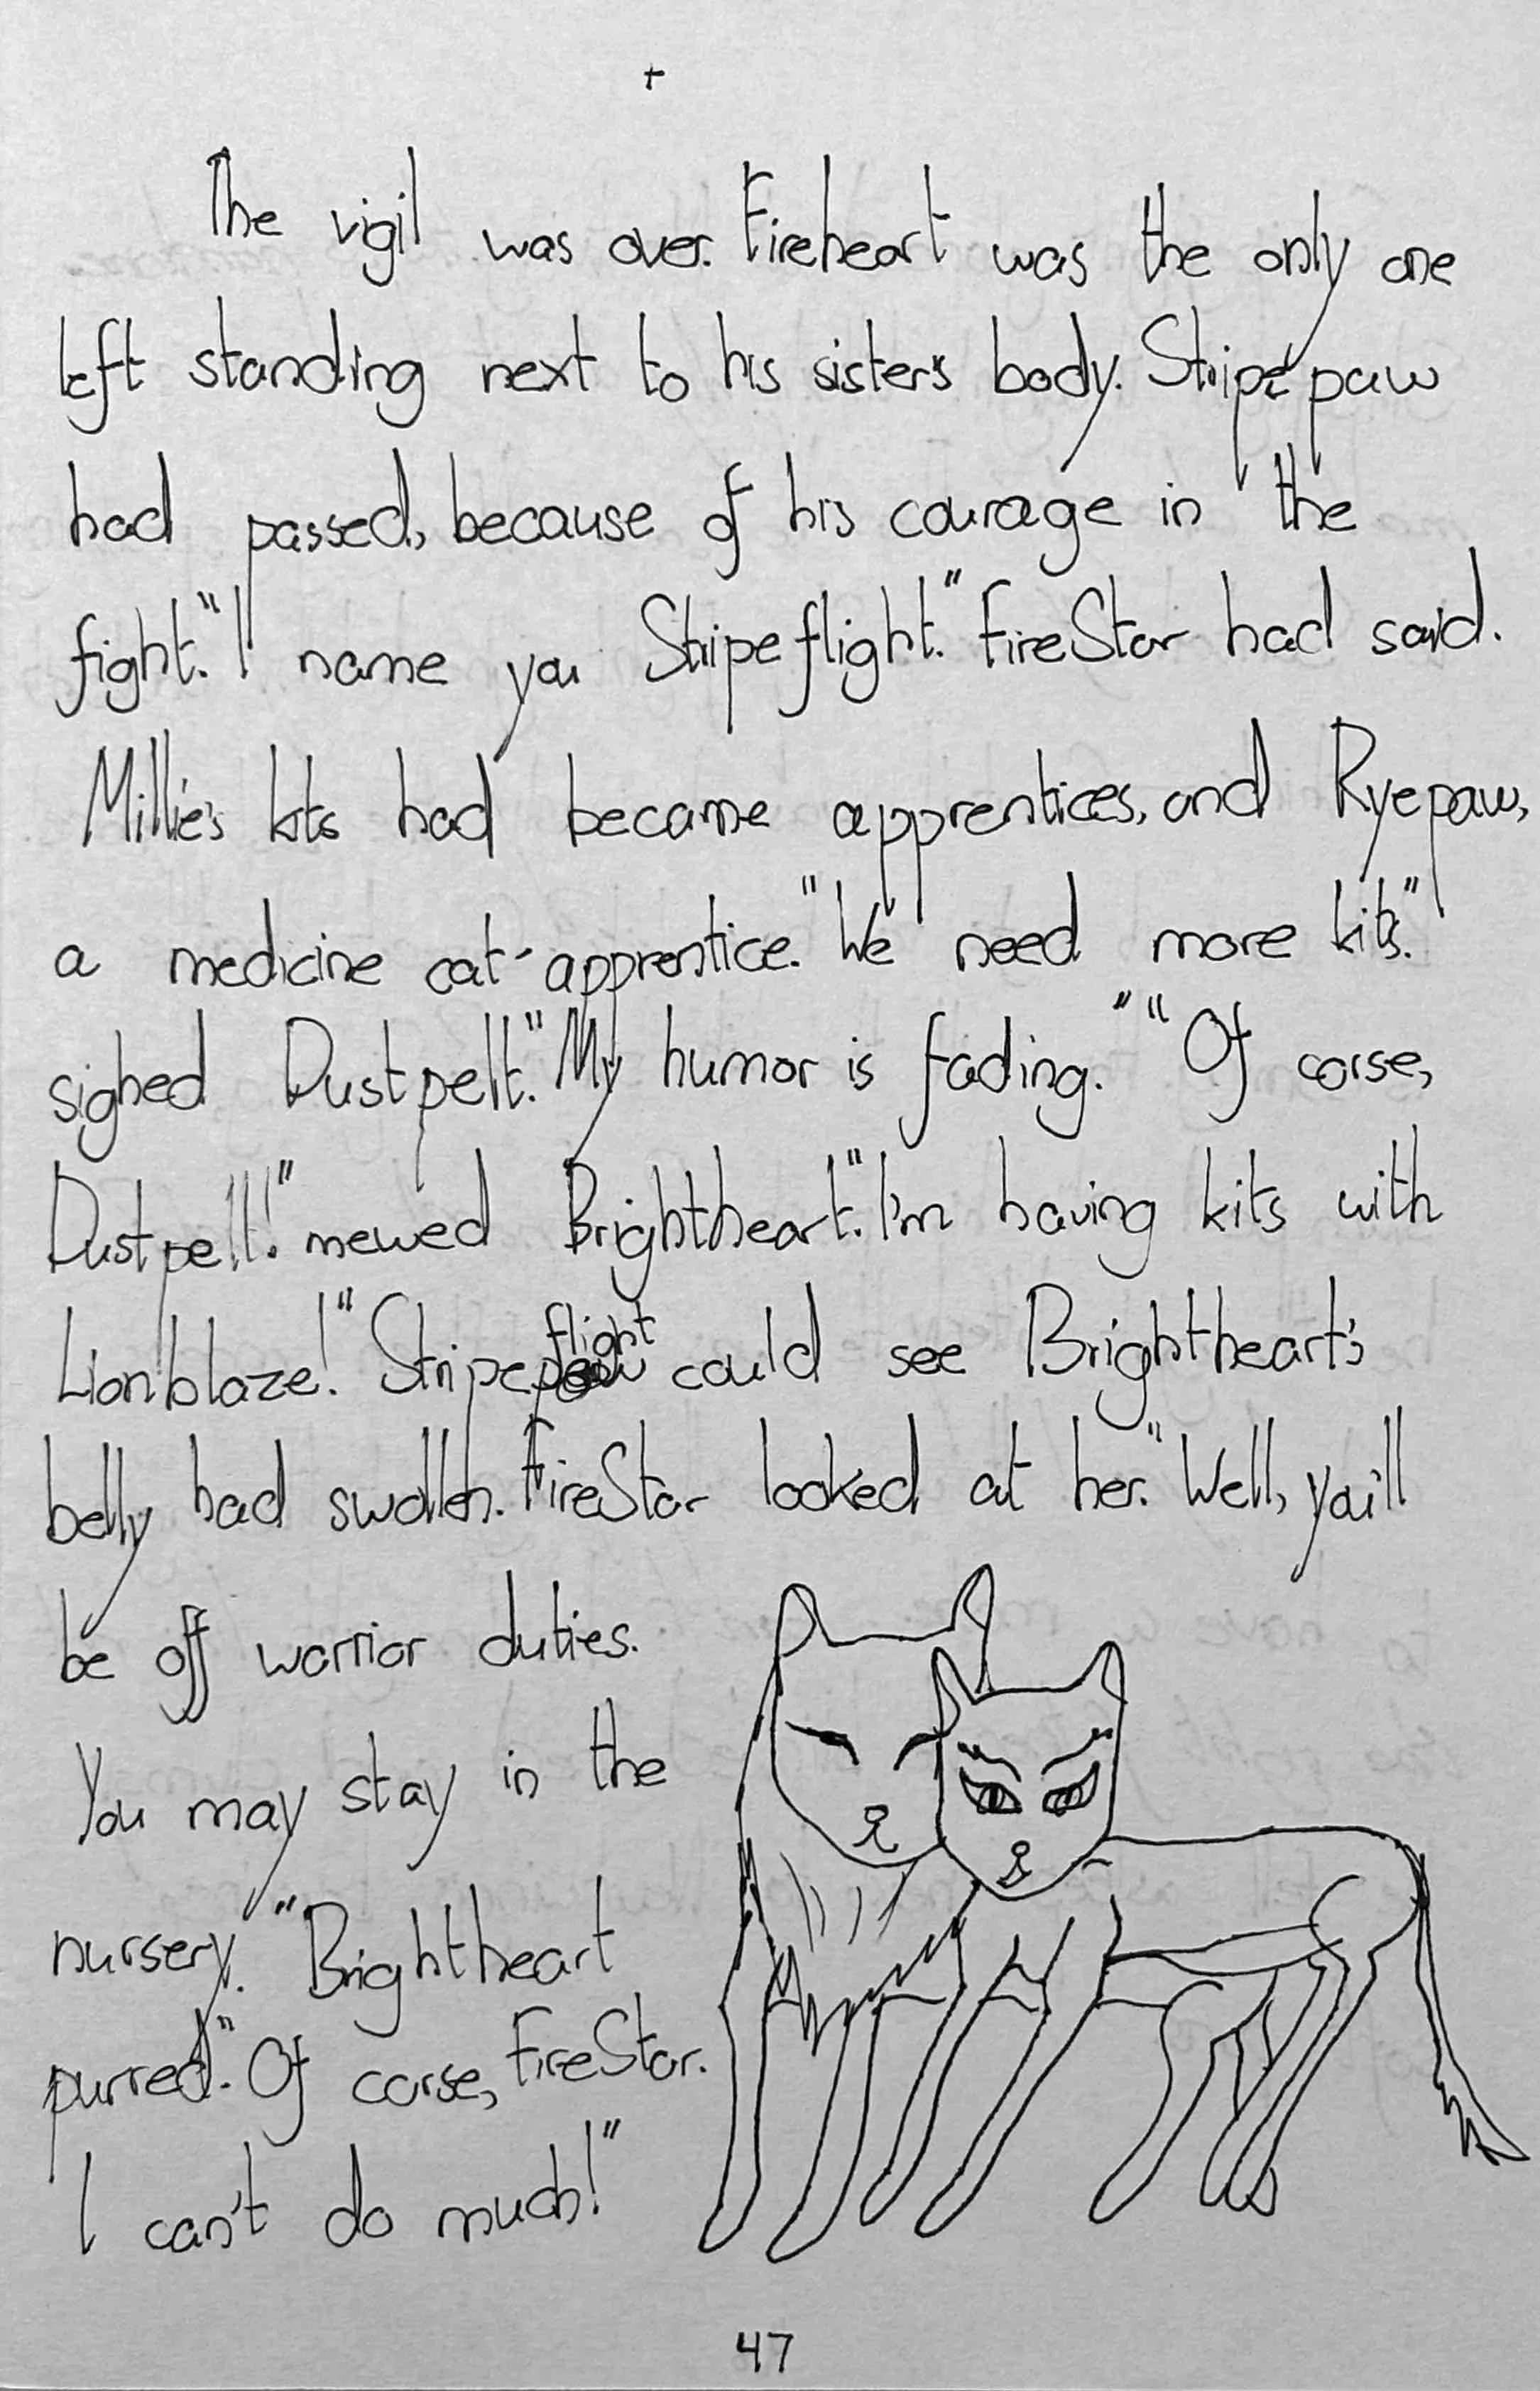 The vigil was over. Fireheart was the only one
left standing next to his sister's body. Stripepaw
had passed, because of his courage in the
fight. "I name you Stripeflight." FireStar had said.
Millie's kits had became apprentices, and Ryepaw,
a medicine cat-apprentice. "We need more kits."
sighed Dustpelt. "My humor is fading." "Of corse,
Dustpelt!" mewed Brightheart. "I'm having kits with
Lionblaze!" Stripeflight could see Brightheart's
belly had swollen. FireStar looked at her. "Well, you'll
be off warrior duties.
You may stay in the
nursery." Brightheart
purred. "Of corse, FireStar.
I can't do much!"
47